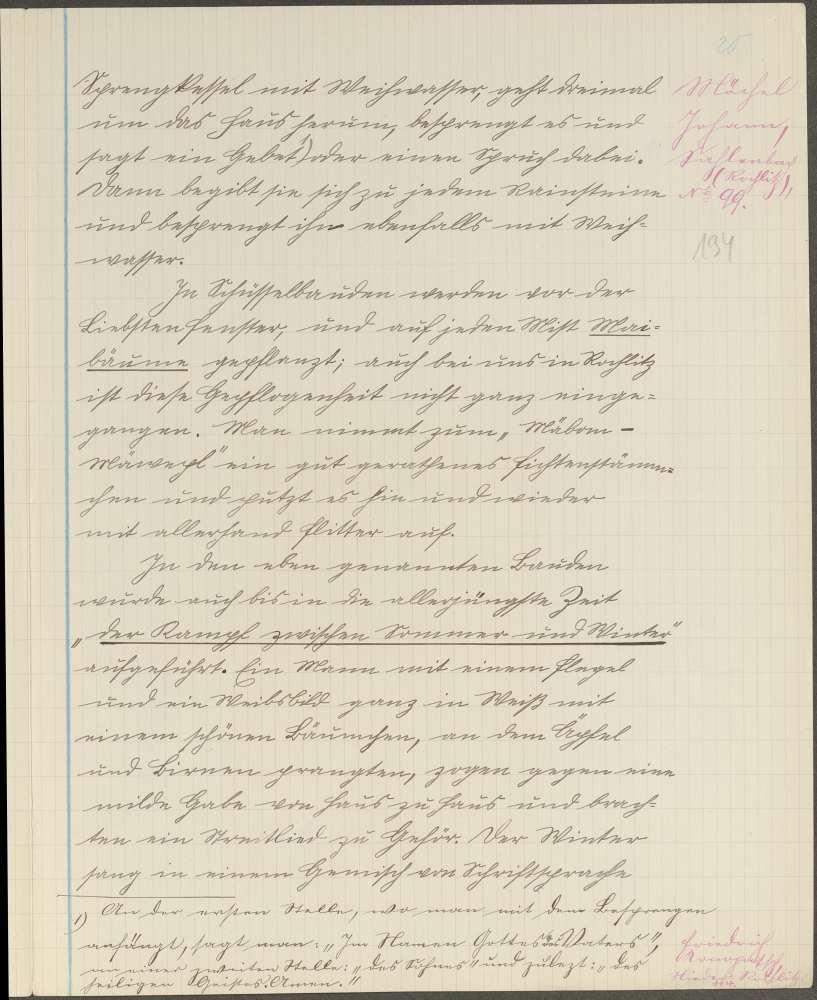 25
Sprengkessel mit Weihwasser, geht dreimal
um das Haus herum, besprengt es und
sagt ein Gebet 1) oder einen Spruch dabei.
Dann begibt sie sich zu jedem Rainsteine
und besprengt ihn ebenfalls mit Weih=
wasser.
Möchel
Johann,
Sahlenbach
(Rochlitz),
No 99.
194
In Schüsselbauden werden vor der
Liebsten Fenster, und auf jeden Mist Mai=
bäume gepflanzt; auch bei uns in Rochlitz
ist diese Gepflogenheit nicht ganz einge=
gangen. Man nimmt zum „Mäbom -
Mäwepl" ein gut gerathenes Fichtenstämm=
chen und putzt es hin und wieder
mit allerhand Flitter auf.
In den eben genannten Bauden
wurde auch bis in die allerjüngste Zeit
„der Kampf zwischen Sommer und Winter"
aufgeführt. Ein Mann mit einem Flegel
und ein Weibsbild ganz in Weiß mit
einem schönen Bäumchen, an dem Äpfel
und Birnen prangten, zogen gegen eine
milde Gabe von Haus zu Haus und brach=
ten ein Streitlied zu Gehör. Der Winter
sang in einem Gemisch von Schriftsprache
1) An der ersten Stelle, wo man mit dem Besprengen
anfängt, sagt man: „Im Namen Gottes des Vaters",
an einer zweiten Stelle: „des Sohnes" und zuletzt: „des
heiligen Geistes. Amen."
Friedrich